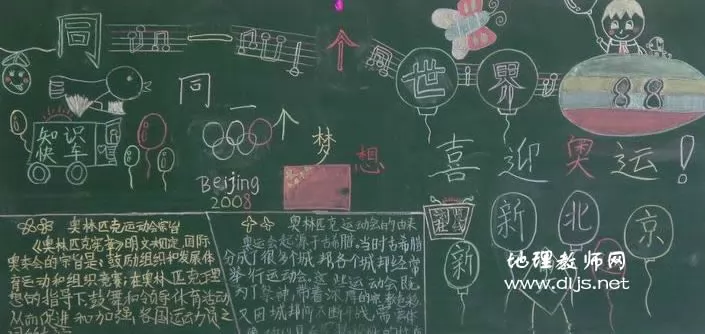 同一个世界
88
同一个梦想
知识
快车
Beijing
2008
喜迎奥运!
新北京
新
奥林匹克运动会宗旨
《奥林匹克宪章》明文规定,国际
奥委会的宗旨是:鼓励组织和发展体
育运动和组织竞赛;在奥林匹克理
想的指导下,鼓舞和领导体育活动
从而促进和加强各国运动员之
奥林匹克运动会的由来
奥运会起源于古希腊,当时古希腊
分成了很多城邦,各个城邦经常
举行运动会,这些运动会既
为了祭神,带着浓厚的宗教色彩
又因城邦间不断
地理教师网
www.dljs.net